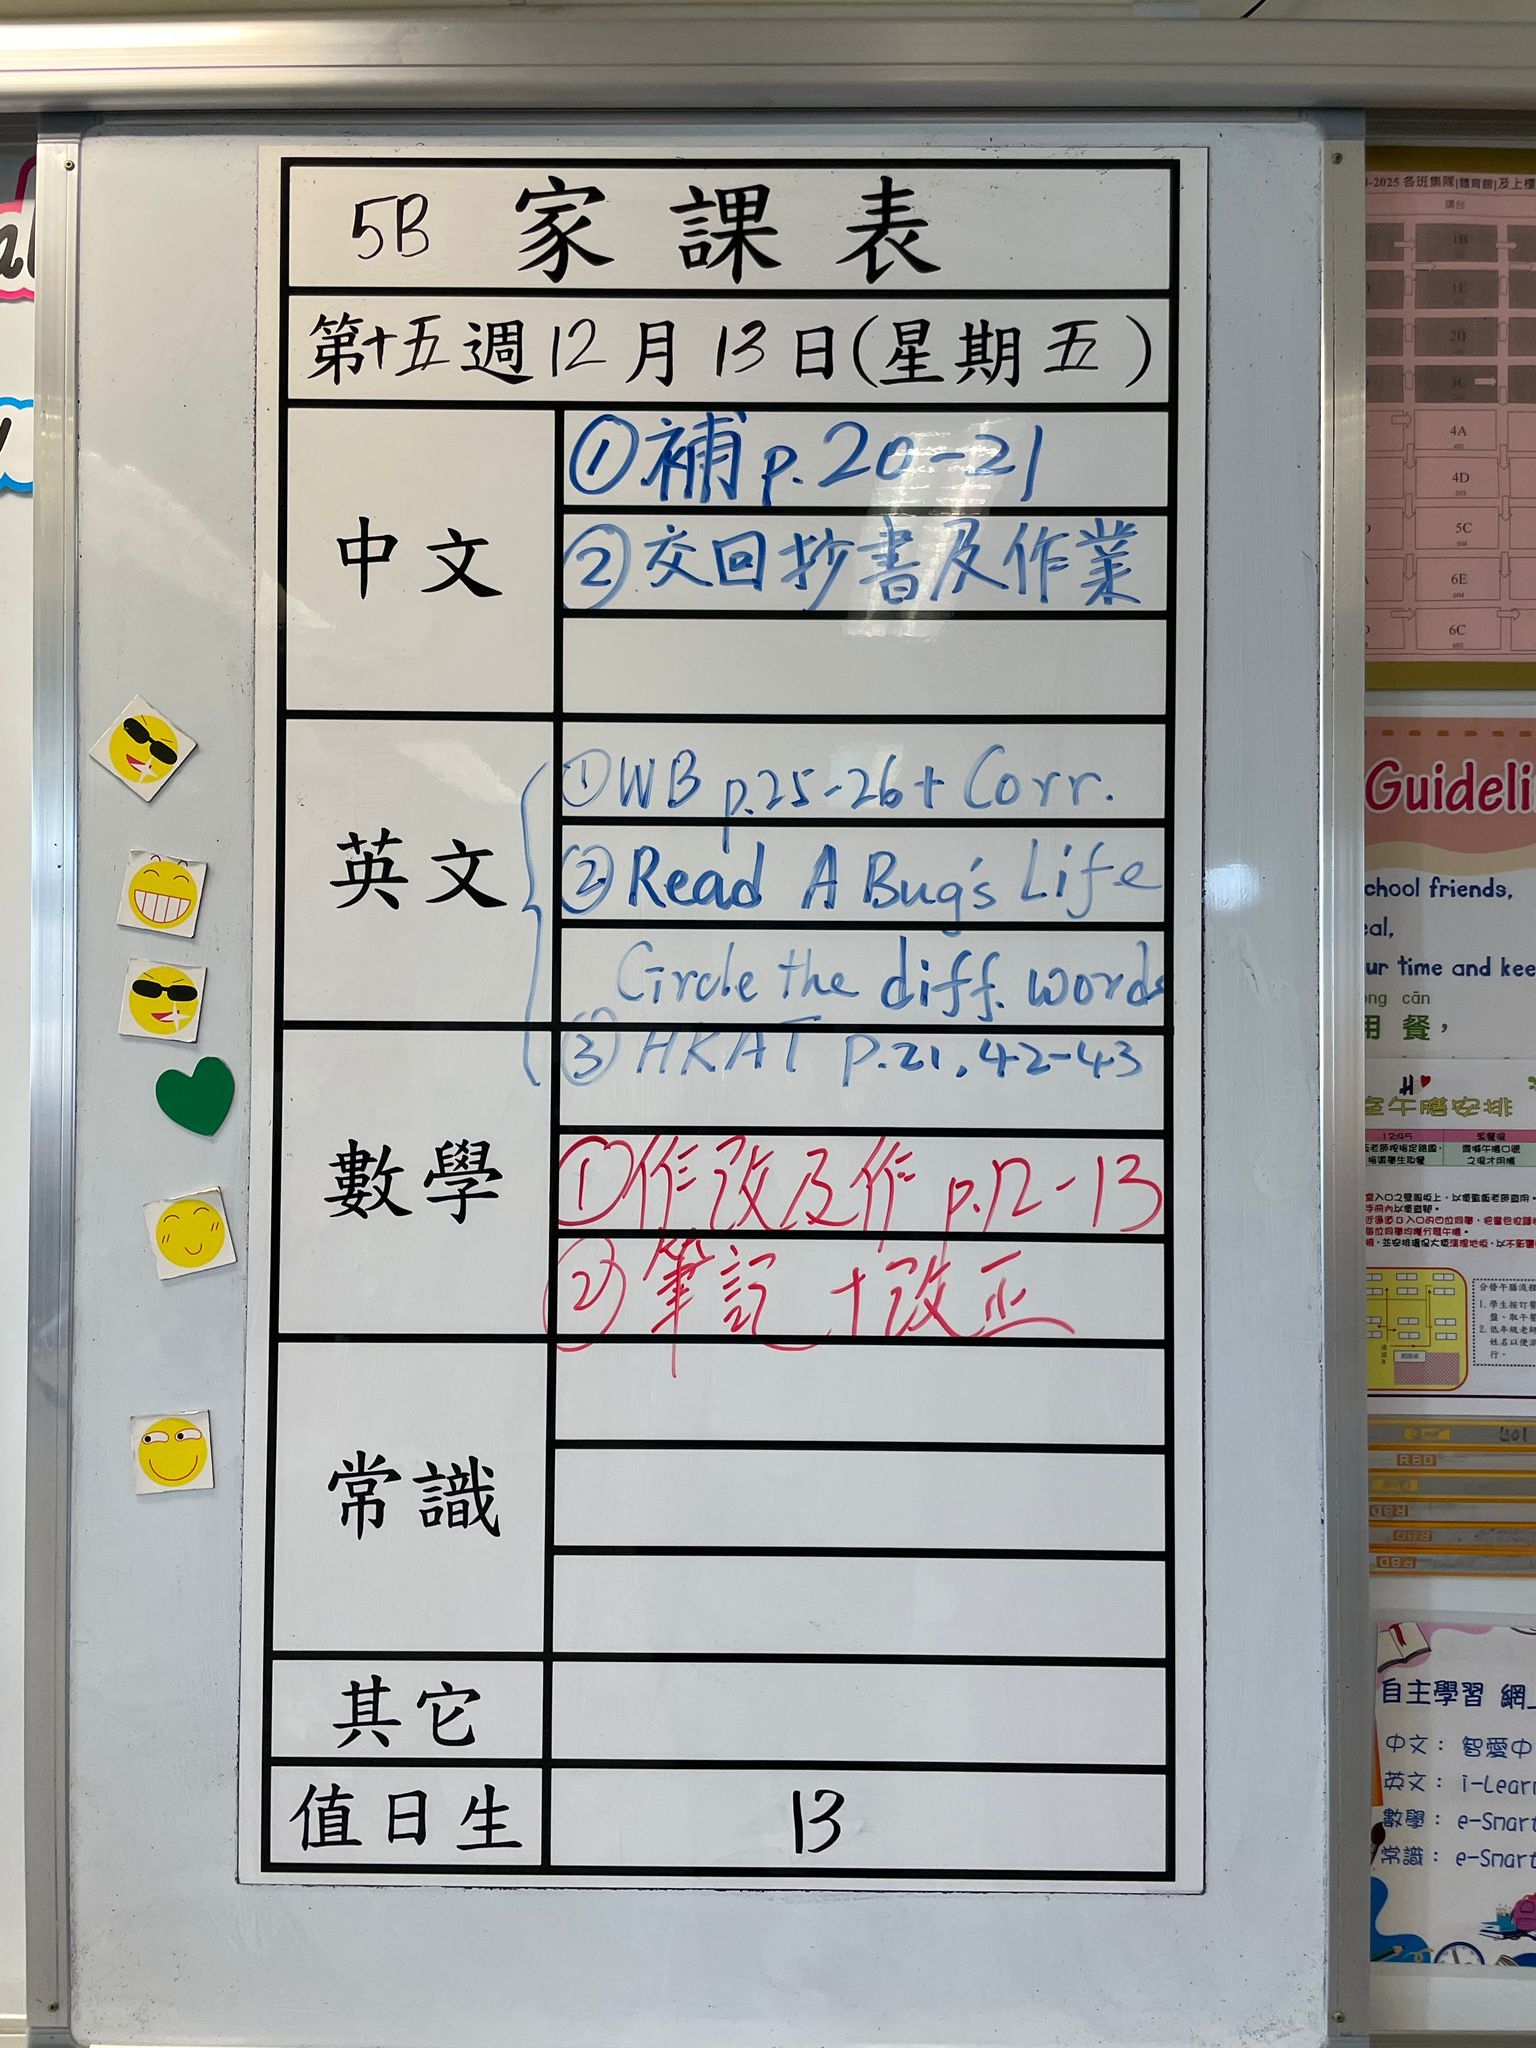 5B 家課表
第十五週12月13日(星期五)
中文
①補p.20-21
②交回抄書及作業
英文
①WB p.25-26+Corr.
②Read A Bug's Life
Circle the diff. words
③HKAT P.21,42-43
數學
①作改及作 p.12-13
②筆記+改正
常識
其它
值日生
13
-2025 各班集隊|體育館|及上樓
講台
1B
1E
2B
3C
4A
4D
5C
6E
6C
Guideli
chool friends,
eal,
ur time and kee
ong cān
用餐，
室午膳安排
12:45
自主學習 網
中文： 智愛中
英文： i-Lear
數學： e-Smart
常識： e-Smart
RBD
RBD
RBD
RBD